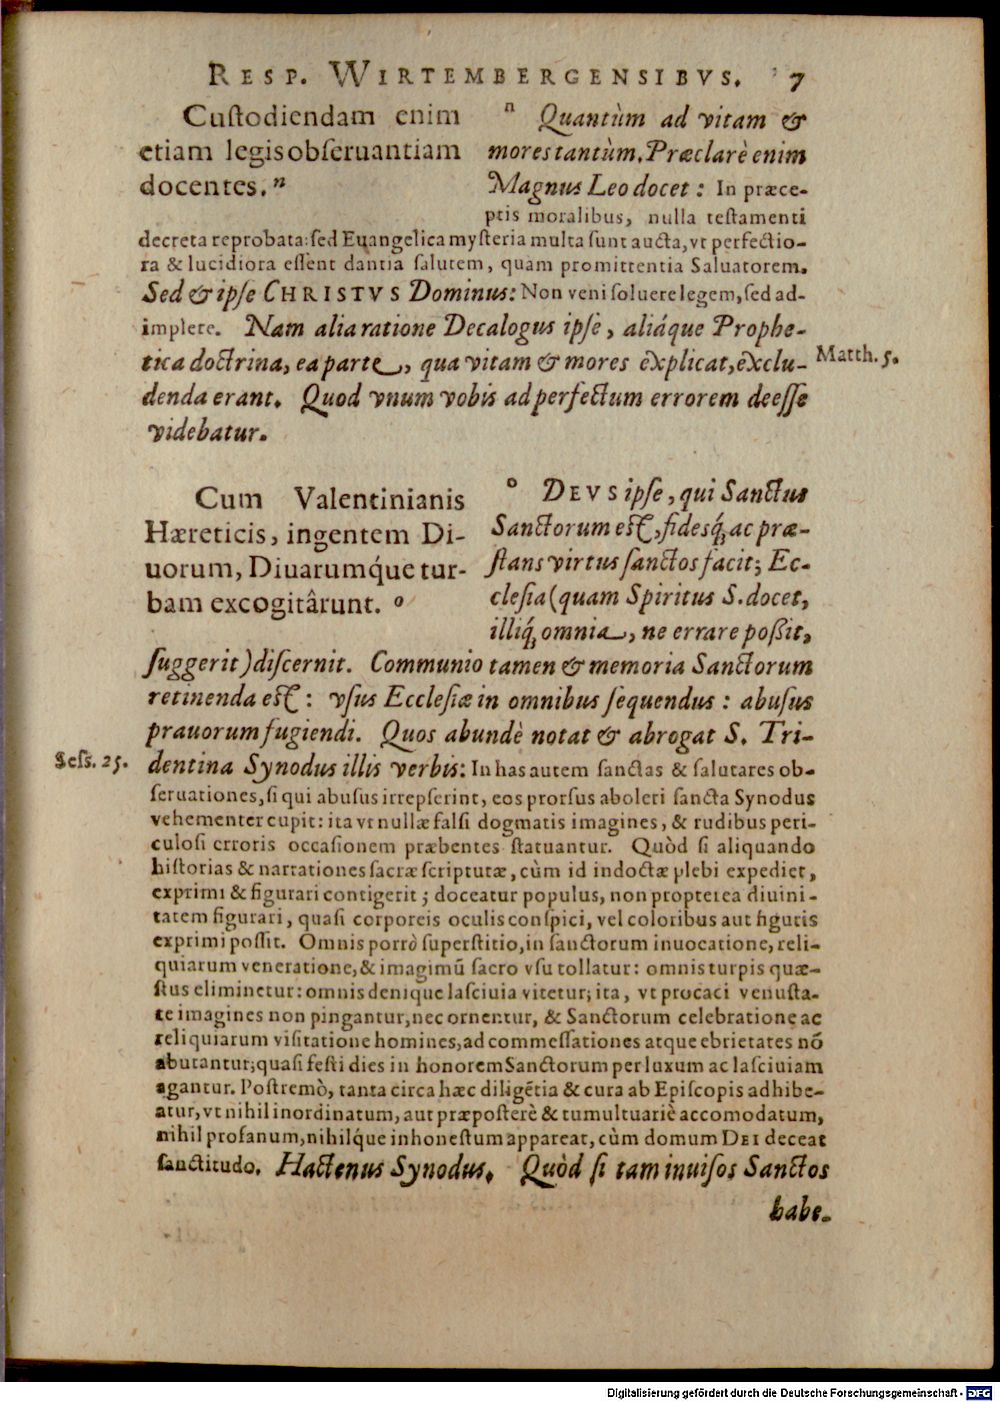 RESP. WIRTEMBERGENSIBVS. 7
Custodiendam enim
etiam legis obſeruantiam
docentes. n
n Quantùm ad vitam &
mores tantùm. Præclarè enim
Magnus Leo docet: In præce-
ptis moralibus, nulla teſtamenti
decreta reprobata: ſed Euangelica myſteria multa ſunt aucta, vt perfectio-
ra & lucidiora eſſent dantia ſalutem, quàm promittentia Saluatorem.
Sed & ipſe CHRISTVS Dominus: Non veni ſoluere legem, ſed ad-
implere. Nam alia ratione Decalogus ipſe, aliáque Prophe-
tica doctrina, ea parte, qua vitam & mores explicat, exclu-
denda erant. Quod vnum vobis ad perfectum errorem deeſſe
videbatur.
Matth. 5.
Cum Valentinianis
Hæreticis, ingentem Di-
uorum, Diuarumq́ue tur-
bam excogitârunt. o
o DEVS ipſe, qui Sanctus
Sanctorum eſt, fidesq́; ac præ-
ſtans virtus ſanctos facit; Ec-
cleſia (quam Spiritus S. docet,
illiq́; omnia, ne errare poßit,
ſuggerit) diſcernit. Communio tamen & memoria Sanctorum
retinenda eſt: vſus Eccleſiæ in omnibus ſequendus: abuſus
prauorum fugiendi. Quos abundè notat & abrogat S. Tri-
Seſſ. 25. dentina Synodus illis verbis: In has autem ſanctas & ſalutares ob-
ſeruationes, ſi qui abuſus irrepſerint, eos prorſus aboleri ſancta Synodus
vehementer cupit: ita vt nullæ falſi dogmatis imagines, & rudibus peri-
culoſi erroris occaſionem præbentes ſtatuantur. Quòd ſi aliquando
hiſtorias & narrationes ſacræ ſcripturæ, cùm id indoctæ plebi expediet,
exprimi & figurari contigerit; doceatur populus, non propterea diuini-
tatem figurari, quaſi corporeis oculis conſpici, vel coloribus aut figuris
exprimi poſſit. Omnis porrò ſuperſtitio, in ſanctorum inuocatione, reli-
quiarum veneratione, & imaginũ ſacro vſu tollatur: omnis turpis quæ-
ſtus eliminetur: omnis denique laſciuia vitetur; ita, vt procaci venuſta-
te imagines non pingantur, nec ornentur, & Sanctorum celebratione ac
reliquiarum viſitatione homines, ad commeſſationes atque ebrietates nõ
abutantur; quaſi feſti dies in honorem Sanctorum per luxum ac laſciuiam
agantur. Poſtremò, tanta circa hæc diligẽtia & cura ab Epiſcopis adhibe-
atur, vt nihil inordinatum, aut præpoſterè & tumultuariè accomodatum,
nihil profanum, nihilq́ue inhoneſtum appareat, cùm domum DEI deceat
ſanctitudo. Hactenus Synodus. Quòd ſi tam inuiſos Sanctos
habe-
Digitalisierung gefördert durch die Deutsche Forschungsgemeinschaft - DFG